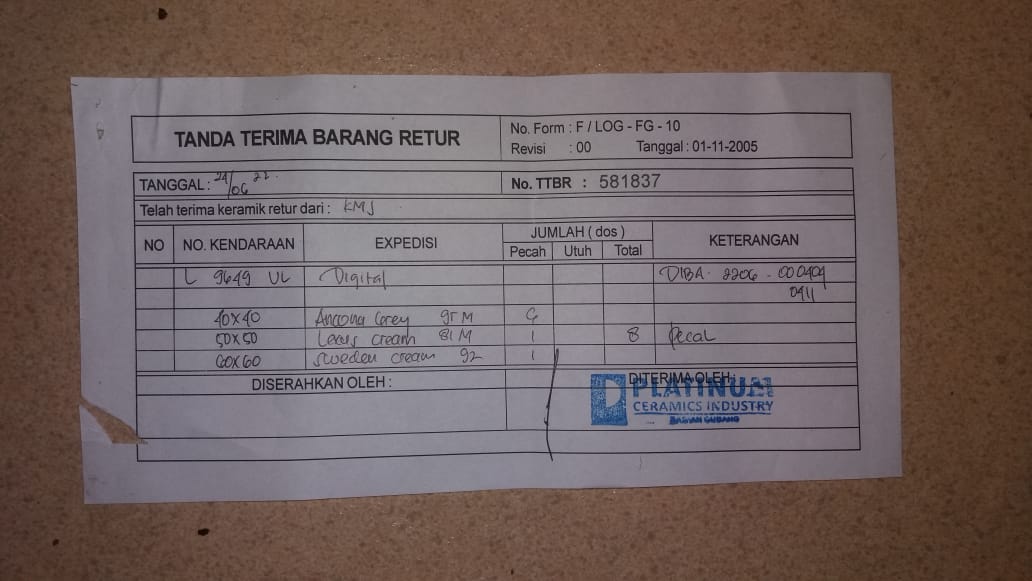 TANDA TERIMA BARANG RETUR
No. Form : F / LOG - FG - 10
Revisi : 00 Tanggal : 01-11-2005
TANGGAL : 24/06 22.
No. TTBR : 581837
Telah terima keramik retur dari : KMJ
NO NO. KENDARAAN EXPEDISI JUMLAH ( dos ) KETERANGAN
Pecah Utuh Total
L 9649 UL Digital DIBA. 2206 - 000404
0411
40x40 Ancona Grey 95 M 6
50x50 cream 81 M 1 8 Pecah
60x60 Sweden cream 92 1
DISERAHKAN OLEH : DITERIMA OLEH :
PLATINUM
CERAMICS INDUSTRY
BAGIAN GUDANG